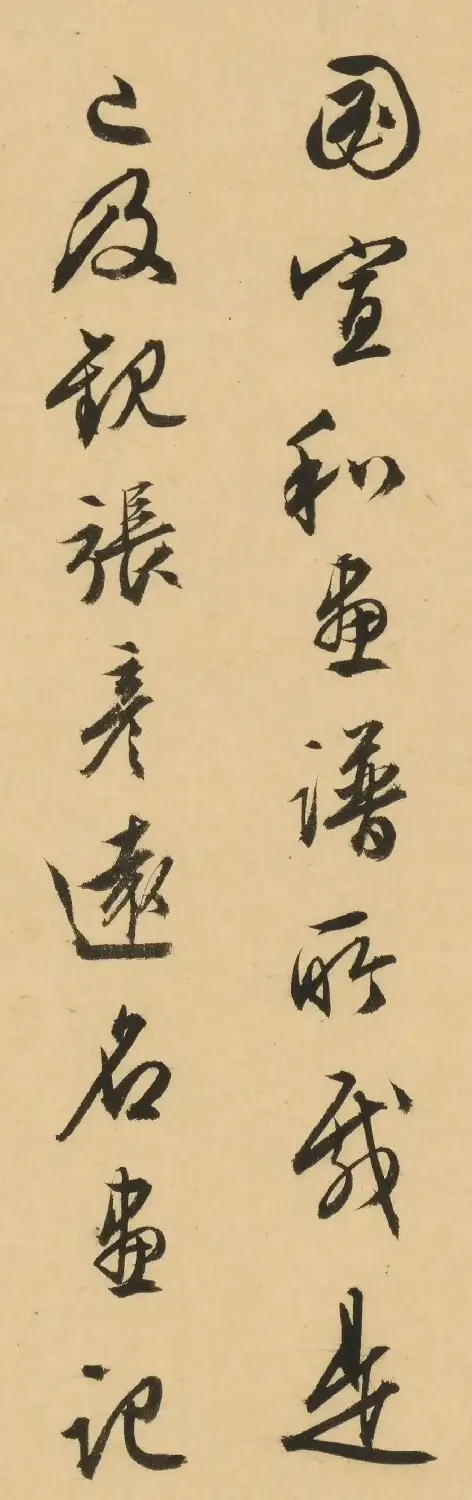 國宣和畫譜所載是
已及觀張彥遠名畫記